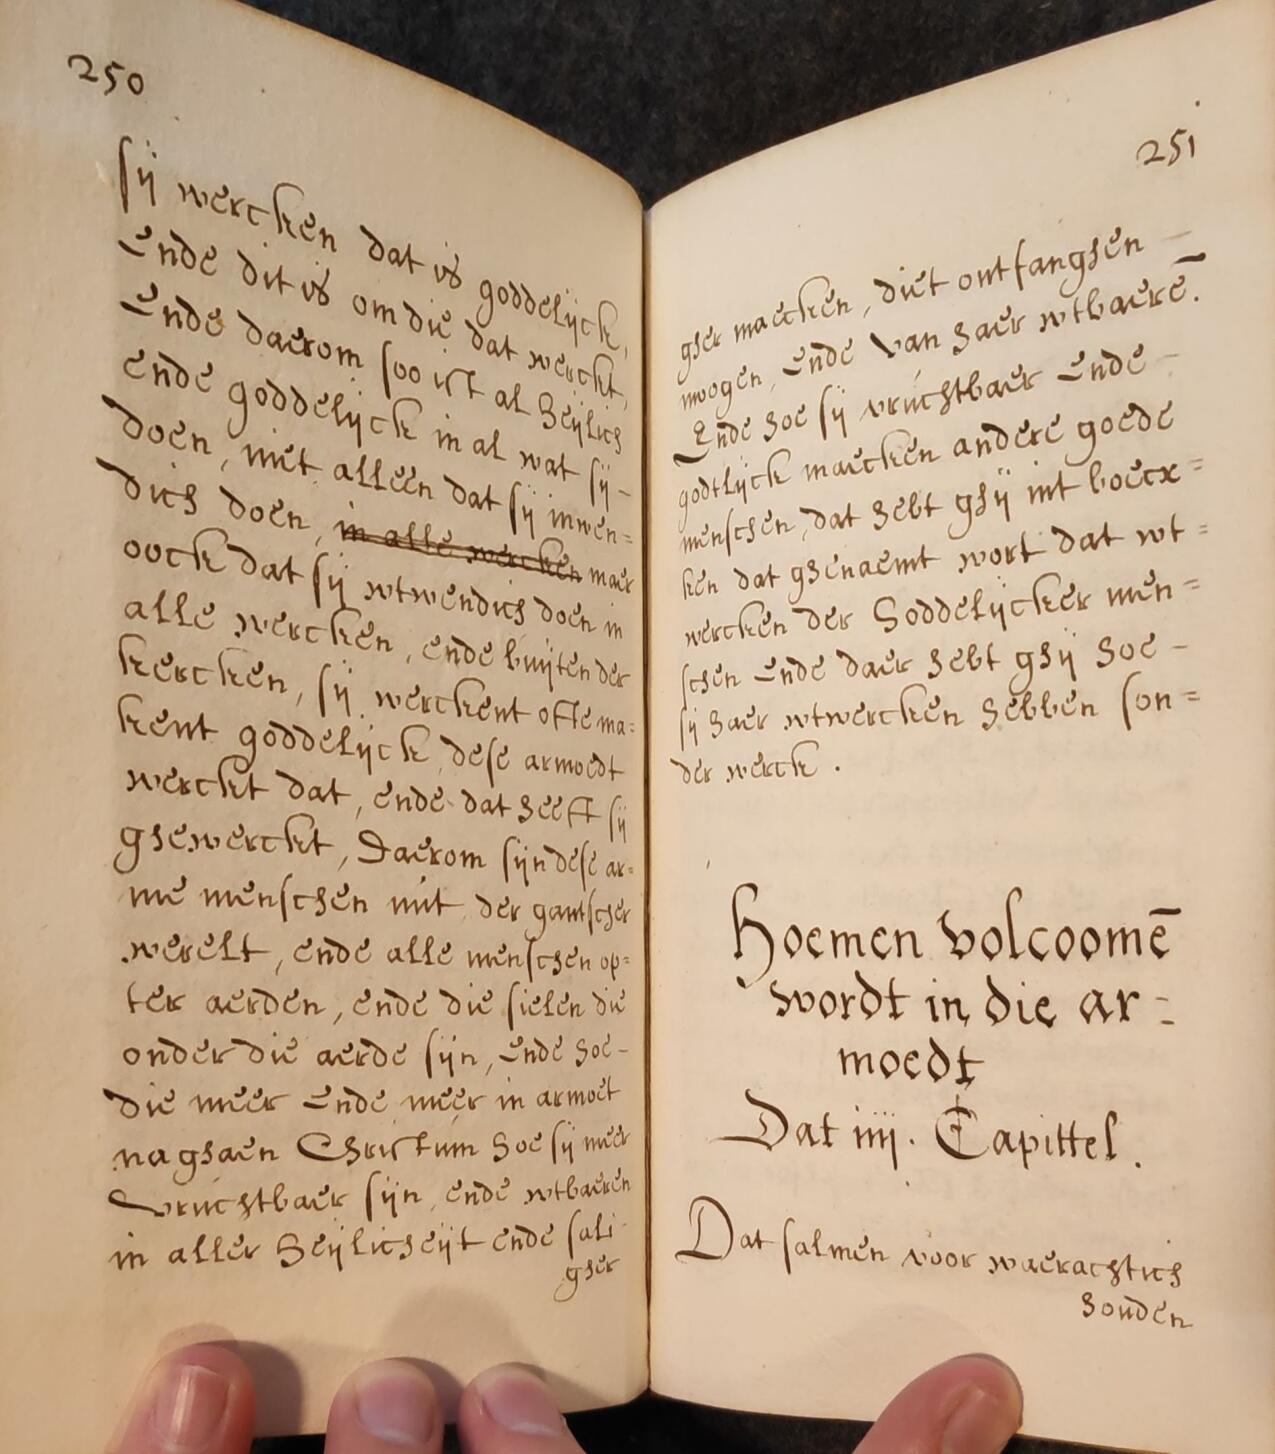 250
sij wercken dat is goddelijck,
ende dit is om die dat werckt,
ende daerom soo ist al heijlich
ende goddelijck in al wat sij-
doen, niet alleen dat sij inwen=
dich doen, in alle wercken maer
oock dat sij wtwendich doen in
alle wercken, ende buijten der
kercken, sij werckent ofte ma=
kent goddelijck, dese armoedt
werckt dat, ende dat heeft sij
ghewerckt, Daerom sijn dese ar=
me menschen mit der gantscher
werelt, ende alle menschen op=
ter aerden, ende die sielen die
onder die aerde sijn, ende hoe-
die meer ende meer in armoet
naghaen Christum hoe sij meer
vruchtbaer sijn, ende wtbaeren
in aller heijlicheijt ende sali
gher
251
gher maecken, diet ontfanghen -
moogen, ende van haer wtbaerē.
Ende hoe sij vruchtbaer ende -
godtlijck maecken andere goede
menschen, dat hebt ghij int boecx=
ken dat ghenaemt wort dat wt=
wercken der Goddelijcker men=
schen ende daer hebt ghij hoe -
sij haer wtwercken hebben son=
der werck.
Hoemen volcoomē
wordt in die ar=
moedt
Dat iiij. Capittel.
Dat salmen voor waerachtich
houden